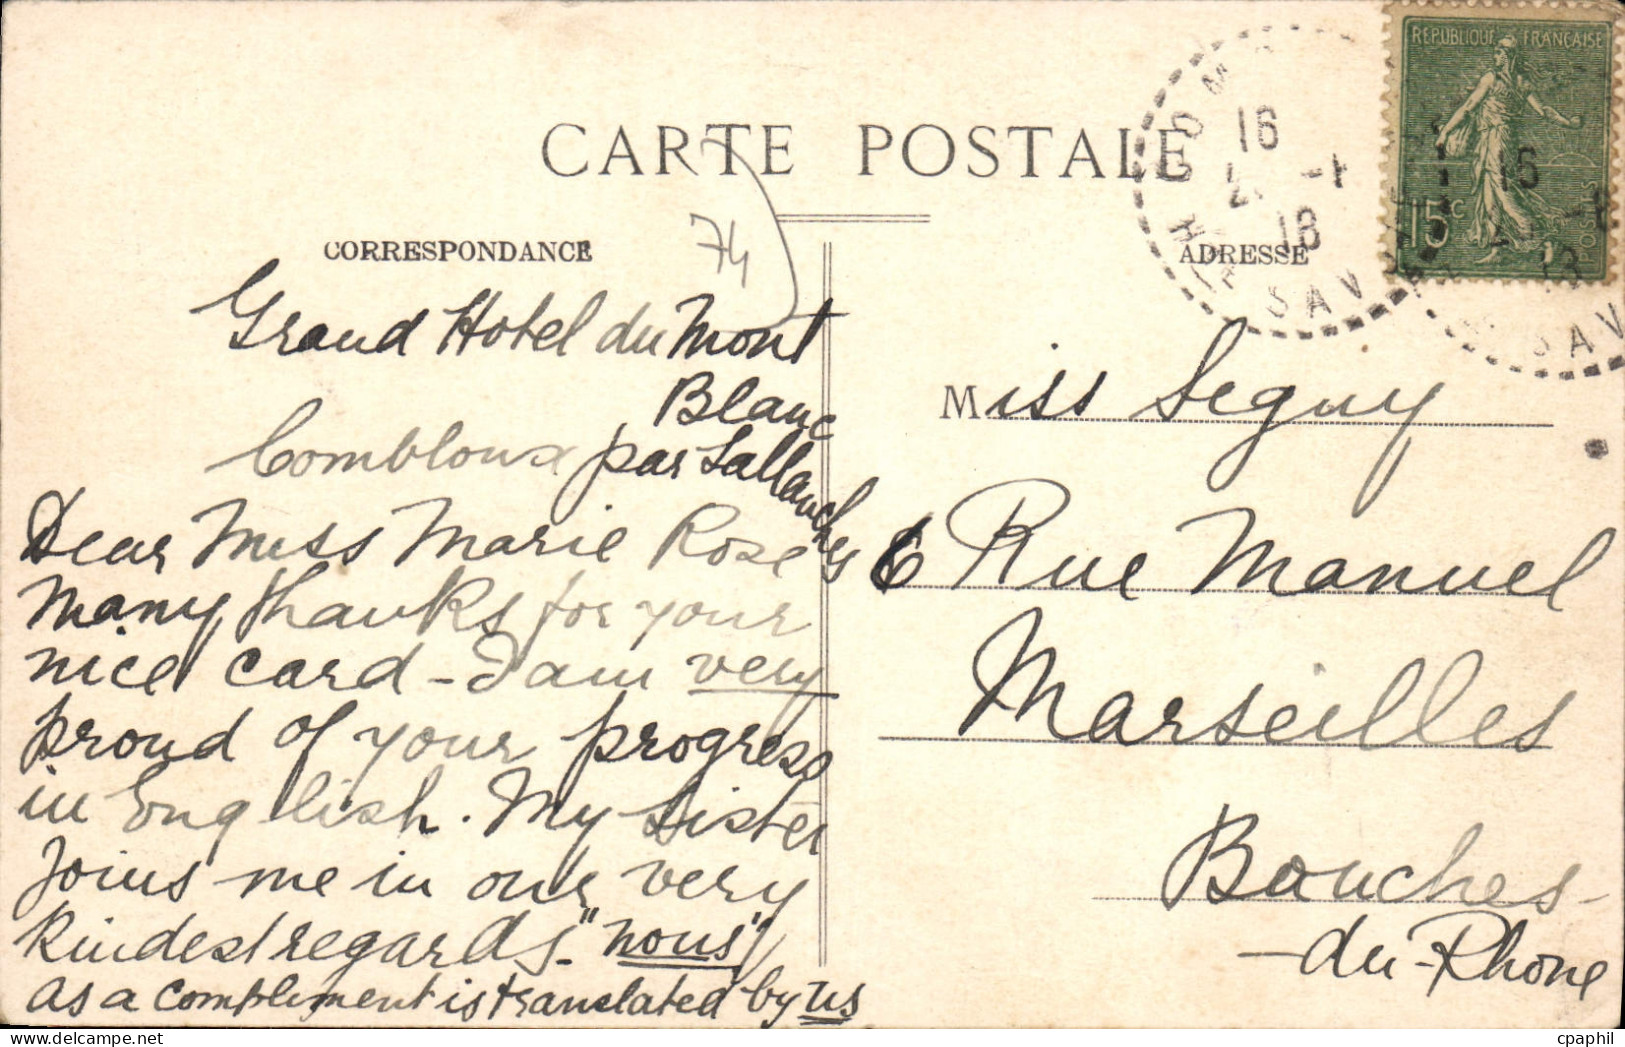 CARTE POSTALE
CORRESPONDANCE
74
ADRESSE
REPUBLIQUE FRANÇAISE
15c
POSTES
16
18
SAV
15
SAV
Grand Hotel du Mont
Blanc
Combloux par Sallanches
Dear Miss Marie Rose
Many thanks for your
nice card - I am very
proud of your progress
in English. My sister
joins me in our very
kindest regards. "nous"
as a complement is translated by us
Miss Seguy
6 Rue Manuel
Marseilles
Bouches-
-du-Rhone
cpaphil